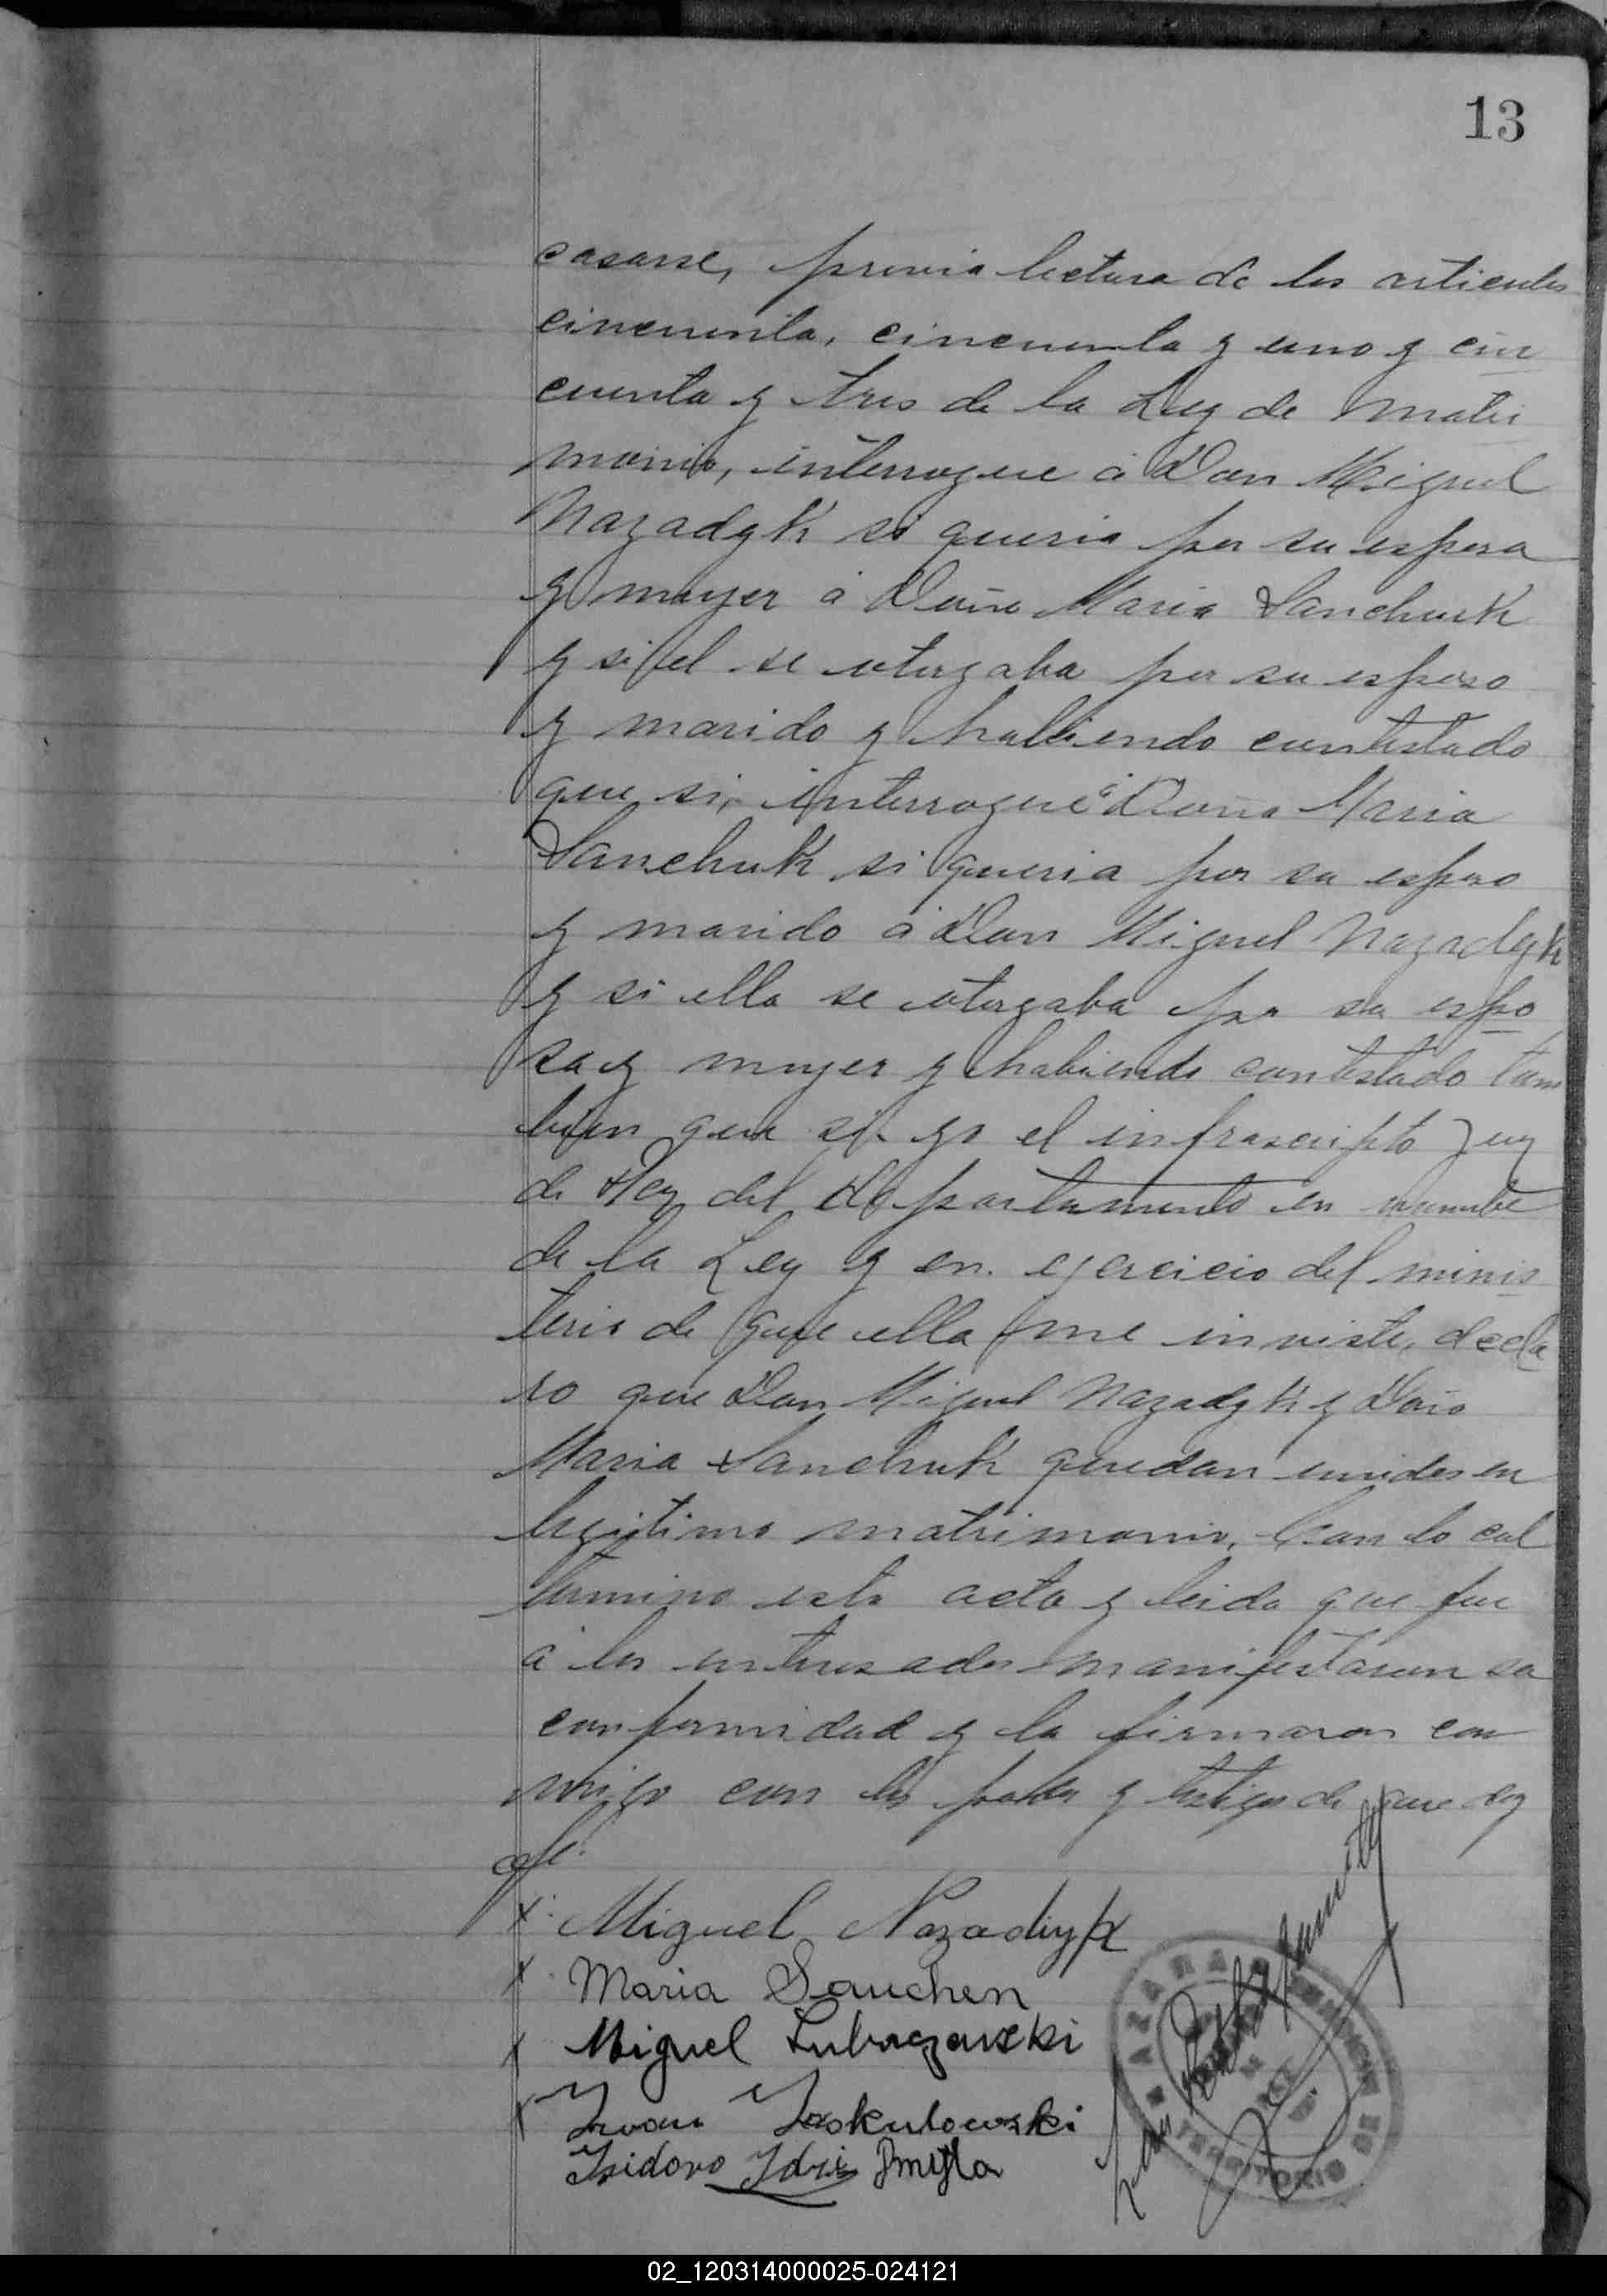 13
casarse, previa lectura de los articulos
cincuenta, cincuenta y uno y cin
cuenta y tres de la Ley de Matri
monio, interrogue á Don Miguel
Nazadyk si queria por su esposa
y mujer á Doña Maria Sanchuk
y si el se otorgaba por su esposo
y marido y habiendo contestado
que si, interrogue á Doña Maria
Sanchuk si queria por su esposo
y marido á Don Miguel Nazadyk
y si ella se otorgaba por su espo
sa y mujer y habiendo contestado tam
bien que si yo el infrascripto Juez
de Paz del Departamento en nombre
de la Ley y en ejercicio del minis
terio de que ella me inviste, decla
ro que Don Miguel Nazadyk y Doña
Maria Sanchuk quedan unidos en
legitimo matrimonio, Con lo cual
termino esta acta y leida que fue
á los interesados manifestaron su
conformidad y la firmaron con
migo con los padres y testigos de que doy
fe.
x Miguel Nazadiyk
x Maria Sauchen
x Miguel Lubaczewski
x Iwan Jaskulowski
Isidoro
AZARA
TERRITORIO
02_120314000025-024121